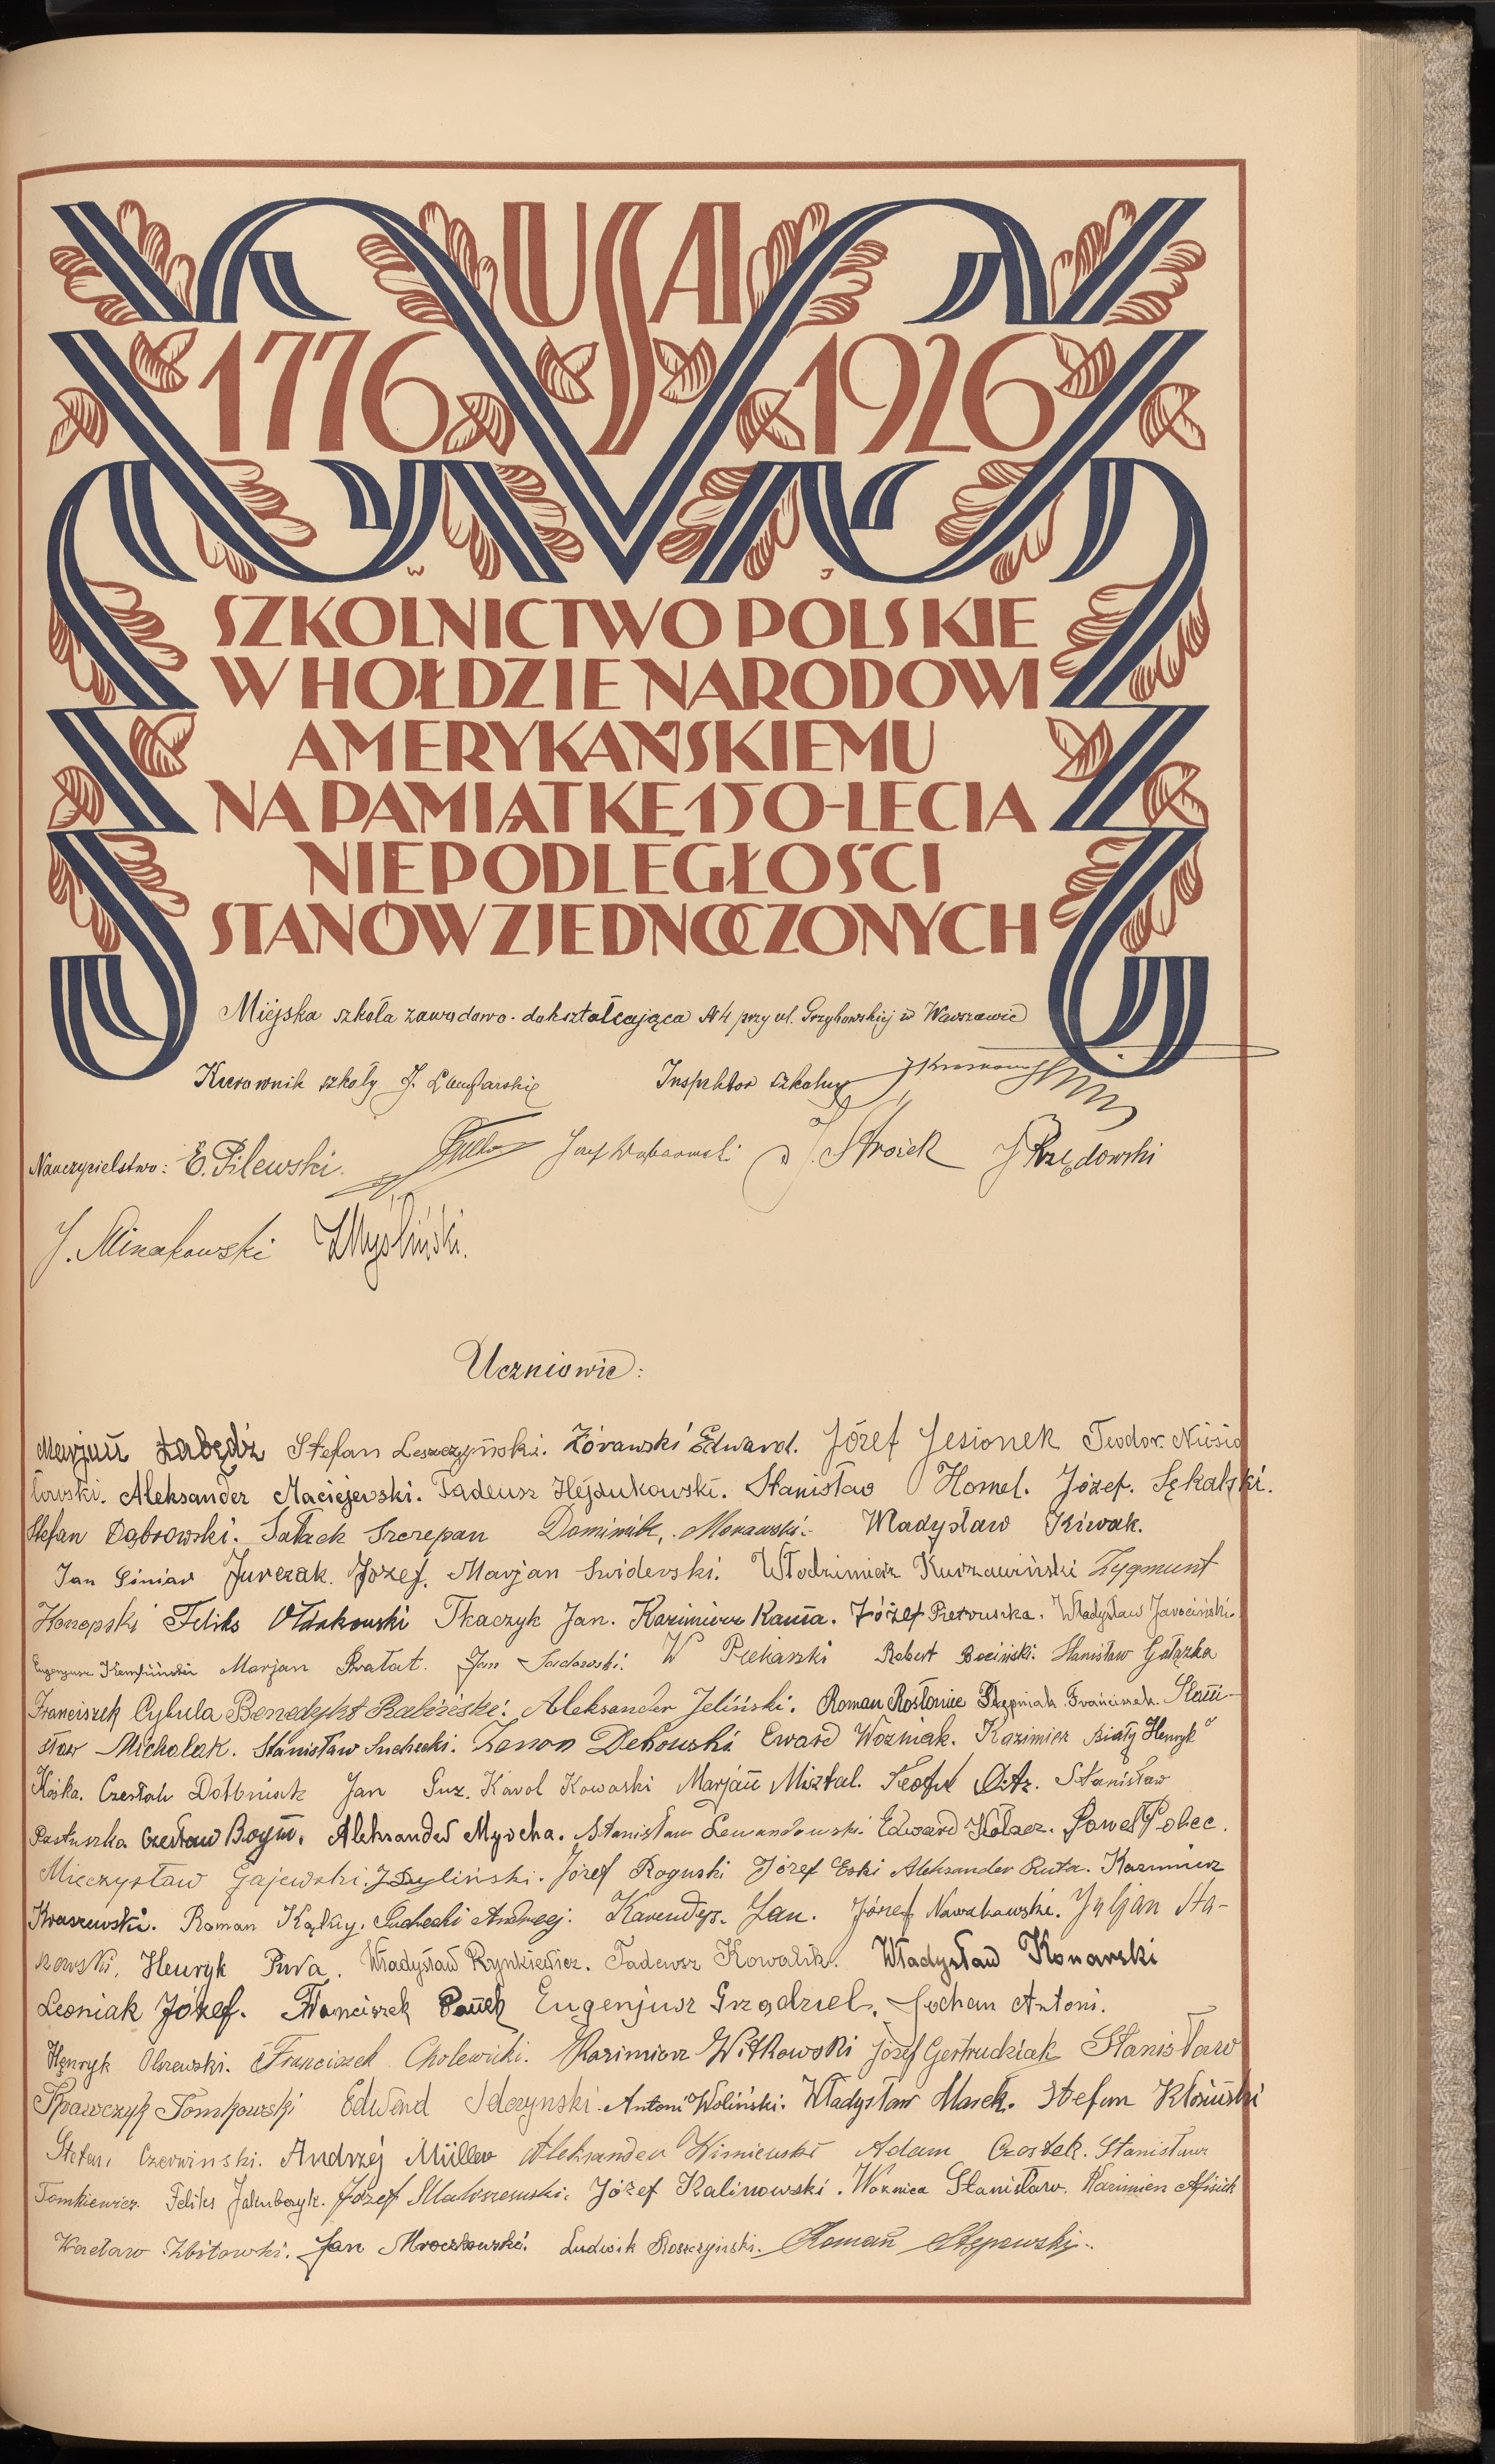 USA
1776 1926
W J
SZKOLNICTWO POLSKIE
W HOŁDZIE NARODOWI
AMERYKAŃSKIEMU
NA PAMIĄTKĘ 150-LECIA
NIEPODLEGŁOŚCI
STANÓW ZJEDNOCZONYCH
Miejska szkoła zawodowo-dokształcająca № 4 przy ul. Grzybowskiej w Warszawie
Kierownik szkoły J. Inspektor szkolny
Nauczycielstwo: E. Pilewski. Józef Dąbrowski J. Stroiek J Rzędowski
J. Minakowski Z Myśliński.
Uczniowie:
Marjan Łabędź Stefan Leszczyński. Żórawski Edward. Józef Jesionek Teodor Niesio
łowski. Aleksander Maciejewski. Tadeusz Hejdukowski. Stanisław Homel. Józef. Sękalski.
Stefan Dąbrowski. Sałack Szczepan Dominik, Morawski. Władysław Kiwak.
Jan Jurczak. Józef. Marjan Swiderski. Włodzimierz Kurzawiński Zygmunt
Konopski Feliks Tkaczyk Jan. Kazimierz Kania. Józef Pietruszka. Władysław Jarociński.
Eugenjusz Marjan Prałat. Jan Sadowski. W Piekarski Robert Bociński. Stanisław Gałązka
Franciszek Cybula Benedykt Rabiński. Aleksander Jeliński. Roman Rosłoniec Stępniak Franciszek. Stani-
sław Michalak. Stanisław Suchecki. Zenon Dębowski Eward Wozniak. Kazimierz Biały Henryk
Kóska. Czesław Dołbniak Jan Guz. Karol Kowaski Marjan Misztal. Teofil Stanisław
Pastuszka Czesław Boym. Aleksander Myrcha. Stanisław Lewandowski. Edward Kołacz. Paweł Pobec.
Mieczysław Gajewski. J Dyliński. Józef Roguski Józef Eski Aleksander Ruta. Kazimierz
Kraszewski. Roman Kątky. Suchecki Andrzej. Karendys. Jan. Józef Nowakowski. Juljan Sta-
nowski. Henryk Piwa. Władysław Rynkiewicz. Tadeusz Kowalik. Władysław Konarski
Leoniak Józef. Franciszek Pauch Eugenjusz Grządziel. Jochan Antoni.
Henryk Olszewski. Franciszek Cholewicki. Kazimierz Witkowski Józef Gertrudziak Stanisław
Spawczyk Tomkowski Edward Idczynski. Antoni Woliński. Władysław Masek. Stefan Kłosiński
Stefan Czerwinski. Andrzej Müller Aleksander Wiśniewski Adam Czostek. Stanisław
Tomkiewicz. Feliks Jakubczyk. Józef Maliszewski. Józef Kalinowski. Woznica Stanisław. Kazimierz Misiak
Wacław Zbitowski. Jan Mroczkowski. Ludwik Roszczyński. Roman Stępowski.